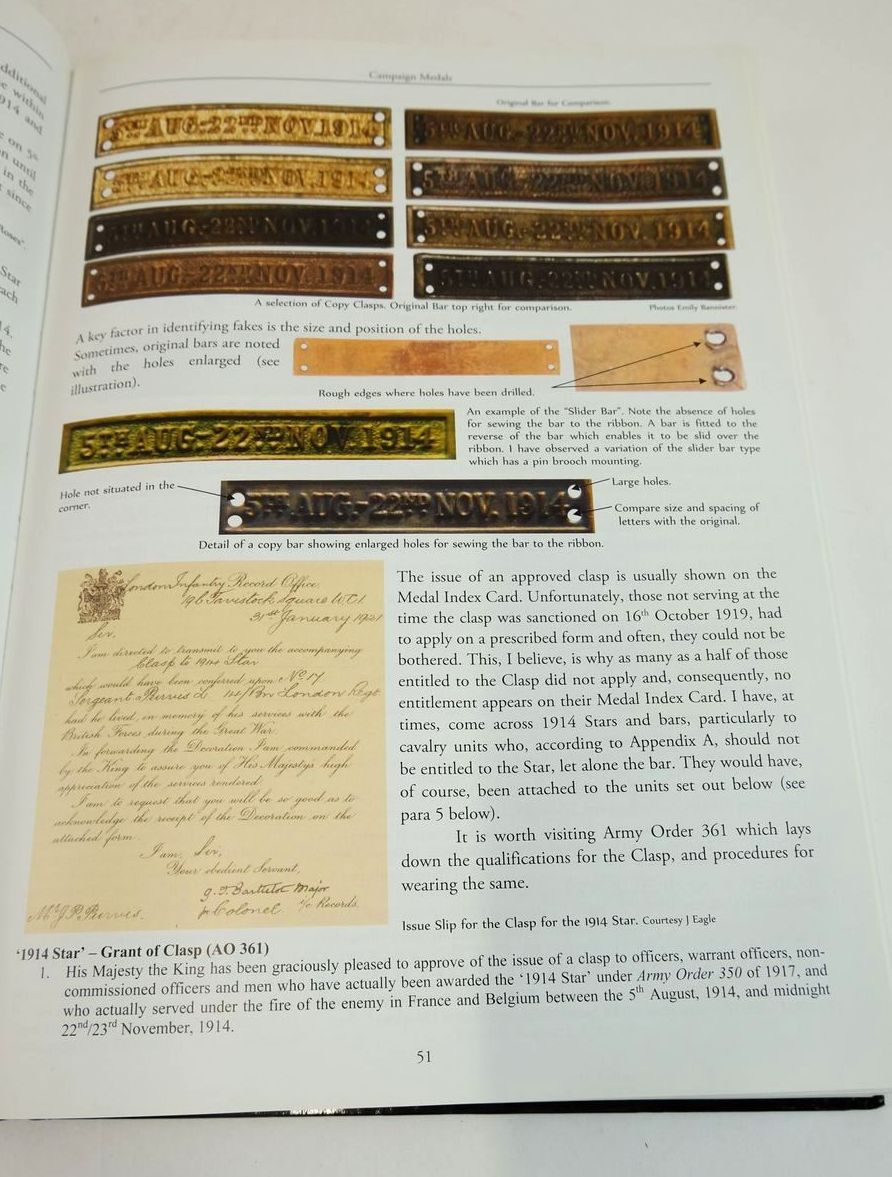 dditional
within
914 and
on 5th
n until
in the
since
Roses".
Star
ach
Campaign Medals
Original Bar for Comparison.
5TH AUG.-22ND NOV. 1914
5TH AUG.-22ND NOV. 1914
5TH AUG.-22ND NOV. 1914
5TH AUG.-22ND NOV. 1914
5TH AUG.-22ND NOV. 1914
5TH AUG.-22ND NOV. 1914
5TH AUG.-22ND NOV. 1914
5TH AUG.-22ND NOV. 1914
A selection of Copy Clasps. Original Bar top right for comparison.
Photos Emily Bannister.
A key factor in identifying fakes is the size and position of the holes.
Sometimes, original bars are noted
with the holes enlarged (see
illustration).
Rough edges where holes have been drilled.
5TH AUG.-22ND NOV. 1914
An example of the "Slider Bar". Note the absence of holes
for sewing the bar to the ribbon. A bar is fitted to the
reverse of the bar which enables it to be slid over the
ribbon. I have observed a variation of the slider bar type
which has a pin brooch mounting.
Hole not situated in the
corner.
5TH AUG.-22ND NOV. 1914
Large holes.
Compare size and spacing of
letters with the original.
Detail of a copy bar showing enlarged holes for sewing the bar to the ribbon.
London Infantry Record Office,
Tavistock Square WC1
31st January 1921
Sir,
I am directed to transmit to you the accompanying
Clasp to 1914 Star
which would have been conferred upon No 17
Sergeant Purves L 14/Bn London Regt
had he lived, in memory of his services with the
British Forces during the Great War.
In forwarding the Decoration I am commanded
by the King to assure you of His Majesty's high
appreciation of the services rendered.
I am to request that you will be so good as to
acknowledge the receipt of the Decoration on the
attached form.
I am, Sir,
Your obedient Servant,
Major
Colonel i/c Records.
Mr J.P. Purves.
The issue of an approved clasp is usually shown on the
Medal Index Card. Unfortunately, those not serving at the
time the clasp was sanctioned on 16th October 1919, had
to apply on a prescribed form and often, they could not be
bothered. This, I believe, is why as many as a half of those
entitled to the Clasp did not apply and, consequently, no
entitlement appears on their Medal Index Card. I have, at
times, come across 1914 Stars and bars, particularly to
cavalry units who, according to Appendix A, should not
be entitled to the Star, let alone the bar. They would have,
of course, been attached to the units set out below (see
para 5 below).
It is worth visiting Army Order 361 which lays
down the qualifications for the Clasp, and procedures for
wearing the same.
Issue Slip for the Clasp for the 1914 Star. Courtesy J Eagle
'1914 Star' – Grant of Clasp (AO 361)
1. His Majesty the King has been graciously pleased to approve of the issue of a clasp to officers, warrant officers, non-
commissioned officers and men who have actually been awarded the '1914 Star' under Army Order 350 of 1917, and
who actually served under the fire of the enemy in France and Belgium between the 5th August, 1914, and midnight
22nd/23rd November, 1914.
51